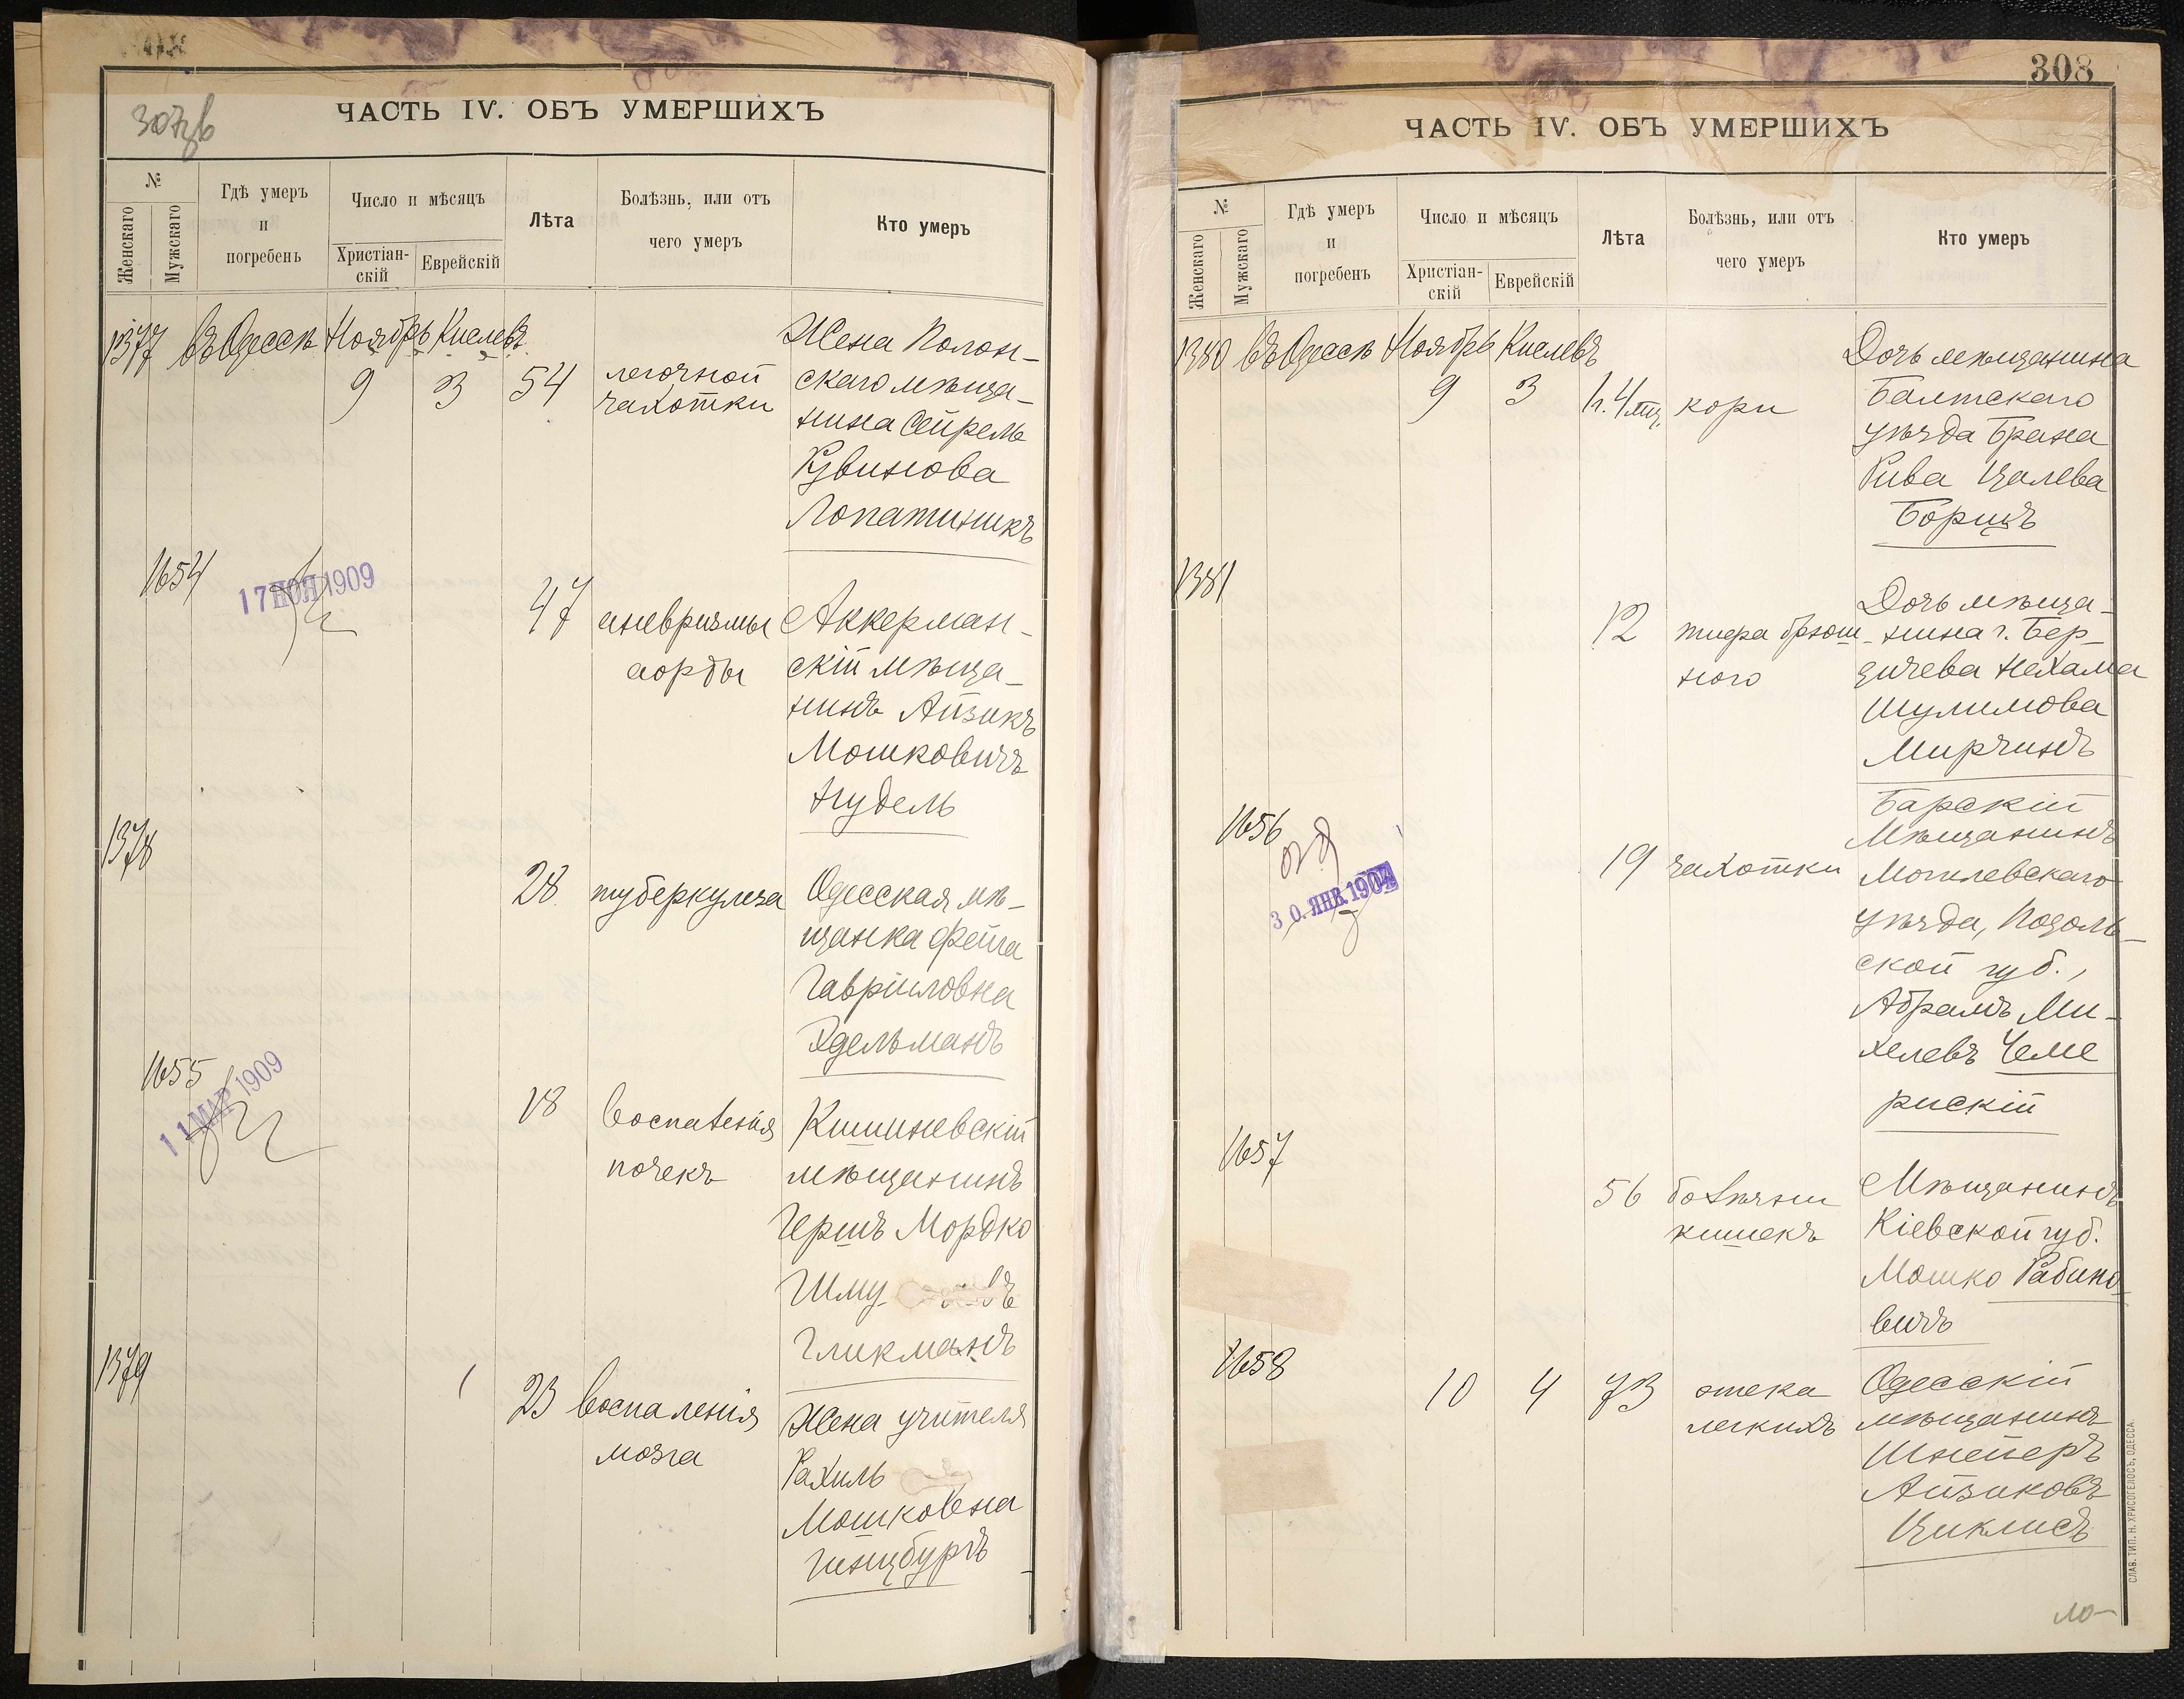 307об
ЧАСТЬ IV. ОБЪ УМЕРШИХЪ
№
Женскаго
Мужскаго
Гдѣ умеръ
и
погребенъ
Число и мѣсяцъ
Христіан-
скій
Еврейскій
Лѣта
Болѣзнь, или отъ
чего умеръ
Кто умеръ
1377 въ Одессѣ Ноябрь Кислевъ
9 3 54 легочной
чахотки
Жена Полон-
скаго мѣща-
нина Сейрель
Рувинова
Лопатникъ
1654
17 НОЯ 1909
47 аневризмы
аорты
Аккерман-
скій мѣща-
нинъ Айзикъ
Мошковичъ
Нудель
1378
28 туберкулеза
Одесская мѣ-
щанка Фейга
Гавриловна
Эдельманъ
1655
11 МАР 1909
18 воспаленія
почекъ
Кишиневскій
мѣщанинъ
Гершъ Мордко
Шму
Гликманъ
1379
23 воспаленія
мозга
Жена учителя
Рахиль
Мошковна
Гинцбургъ
308
ЧАСТЬ IV. ОБЪ УМЕРШИХЪ
№
Женскаго
Мужскаго
Гдѣ умеръ
и
погребенъ
Число и мѣсяцъ
Христіан-
скій
Еврейскій
Лѣта
Болѣзнь, или отъ
чего умеръ
Кто умеръ
1380 въ Одессѣ Ноябрь Кислевъ
9 3 1 г. 4 мц. кори
Дочь мѣщанина
Балтскаго
уѣзда Брана
Рива Цалева
Борщъ
1381
12 тифа брюш-
ного
Дочь мѣща-
нина г. Бер-
дичева Нехама
Шулимова
Мирчинъ
1656
30 ЯНВ 1904
19 чахотки
Барскій
Мѣщанинъ
Могилевскаго
уѣзда, Подоль-
ской губ.,
Абрамъ Ми-
хелевъ Чеме
рискій
1657
56 болѣзни
кишекъ
Мѣщанинъ
Кіевской губ.
Мошко Рабино-
вичъ
1658
10 4 73 отека
легкихъ
Одесскій
мѣщанинъ
Шнееръ
Айзиковъ
Циклисъ
СЛАВ. ТИП. Н. ХРИСОГЕЛОСЪ, ОДЕССА.